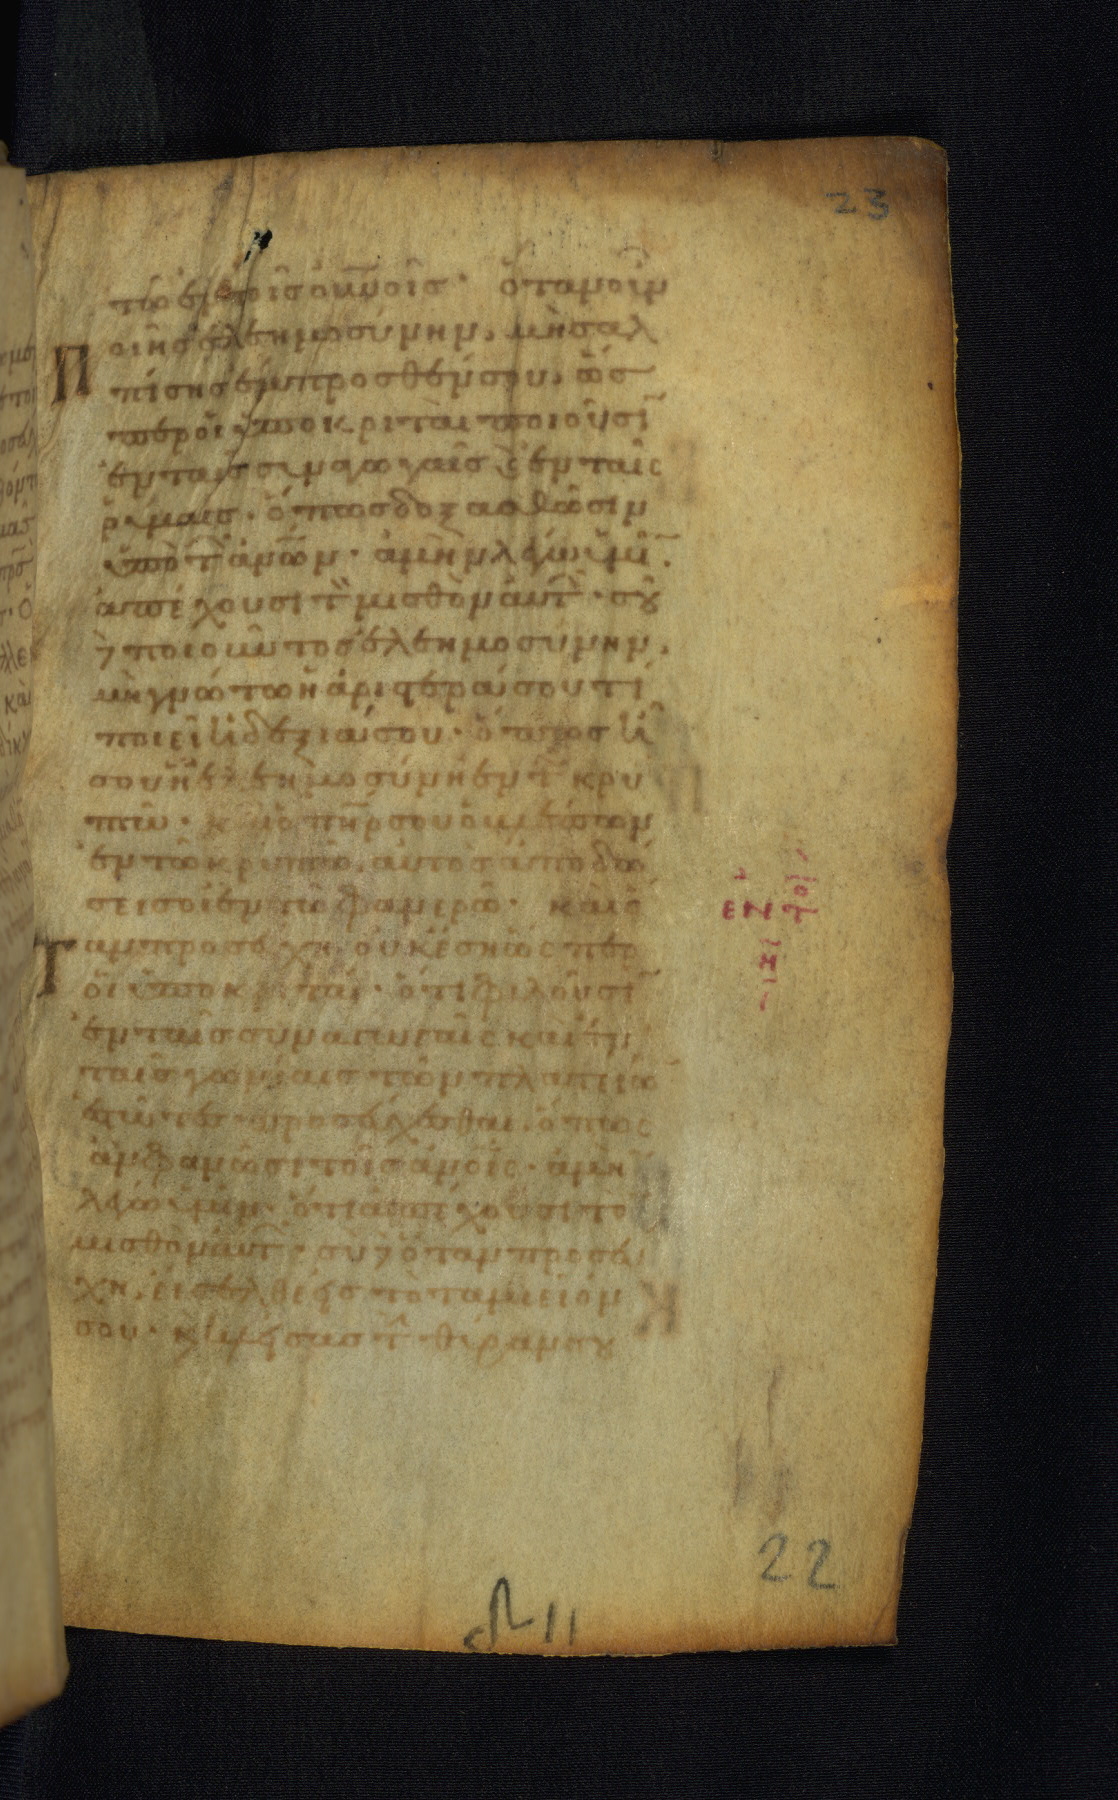 23
τῶ ἐν τοῖς οὐνοις· ὅταν οὖν
ποιῆς ἐλεημοσύνην, μὴ σαλ
πίσης ἔμπροσθέν σου, ὥσ
περ οἱ ὑποκριταὶ ποιοῦσι
ἐν ταῖς συναγωγαῖς κ ἐν ταῖς
ῥύμαις· ὅπως δοξασθῶσιν
ὑπὸ τ ἀνων· ἀμὴν λέγω ὑμῖ
ἀπέχουσι τ μισθὸν αὐτ· σοῦ
δὲ ποιοῦντος ἐλεημοσύνην,
μὴ γνώτω ἡ ἀριστερά σου τί
ποιεῖ ἡ δεξιά σου· ὅπως ἦ
σου ἡ ἐλεημοσύνη ἐν τ κρυ
πτῶ· κ ὁ πηρ σου ὁ βλέπων
ἐν τῶ κρυπτῶ, αὐτὸς ἀποδώ
σει σοι ἐν τῶ φανερῶ· καὶ ὅ
Ταν προσεύχη, οὐκ ἔση ὡσπερ
οἱ ὑποκριταί· ὅτι φιλοῦσι
ἐν ταῖς συναγωγαῖς καὶ ἐν
ταῖς γωνίαις τῶν πλατειῶ
ἑστῶτες προσεύχεσθαι, ὅπως
ἂν φανῶσι τοῖς ἀνοις· ἀμὴ
λέγω ὑμῖν ὅτι ἀπέχουσι τὸ
μισθὸν αὐτ· σὺ δὲ ὅταν προσεύ
χη, εἴσελθε εἰς τὸ ταμιεῖόν
σου· κ κλείσας τ θύραν σου
22